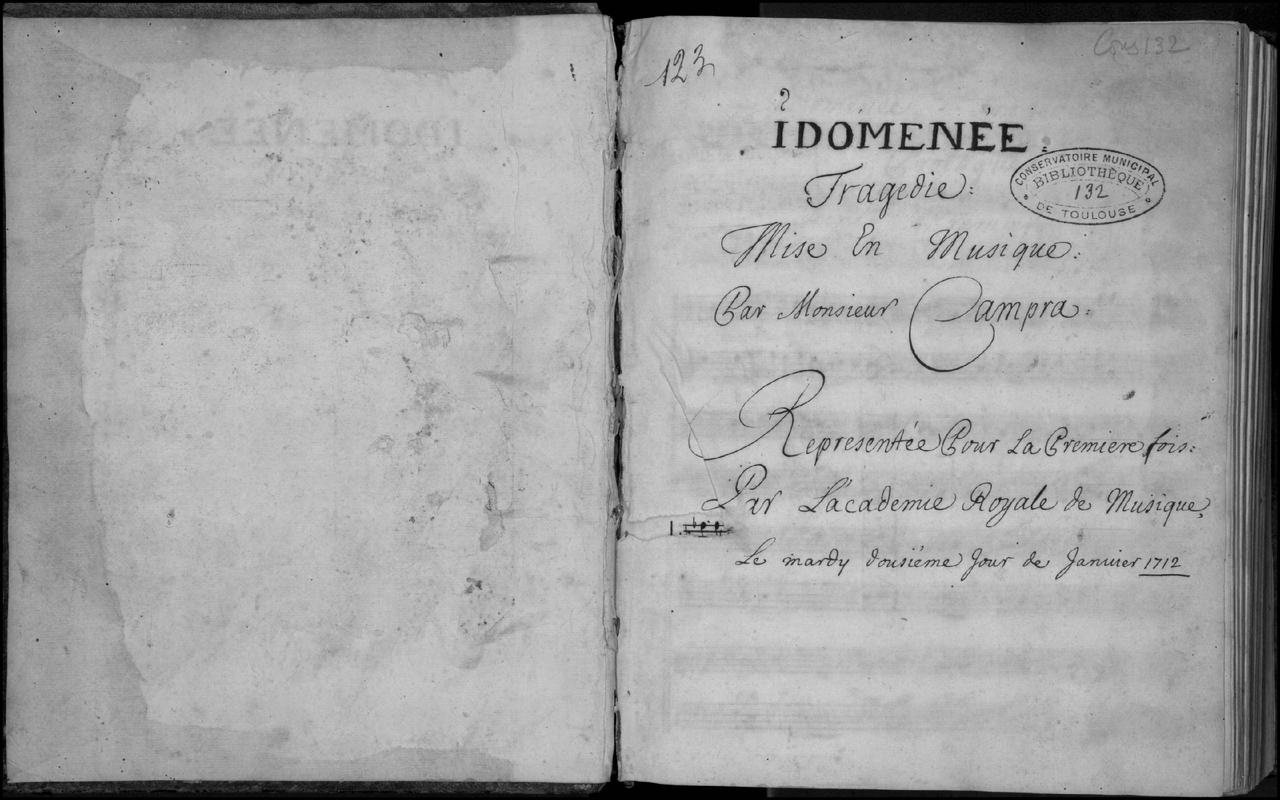 Cons 132
123
IDOMENÉE
CONSERVATOIRE MUNICIPAL
BIBLIOTHÈQUE
132
DE TOULOUSE
Tragedie:
Mise En Musique:
Par Monsieur Campra:
Representée Pour La Premiere fois:
Par L'academie Royale de Musique,
Le mardy dousiéme Jour de Janvier 1712